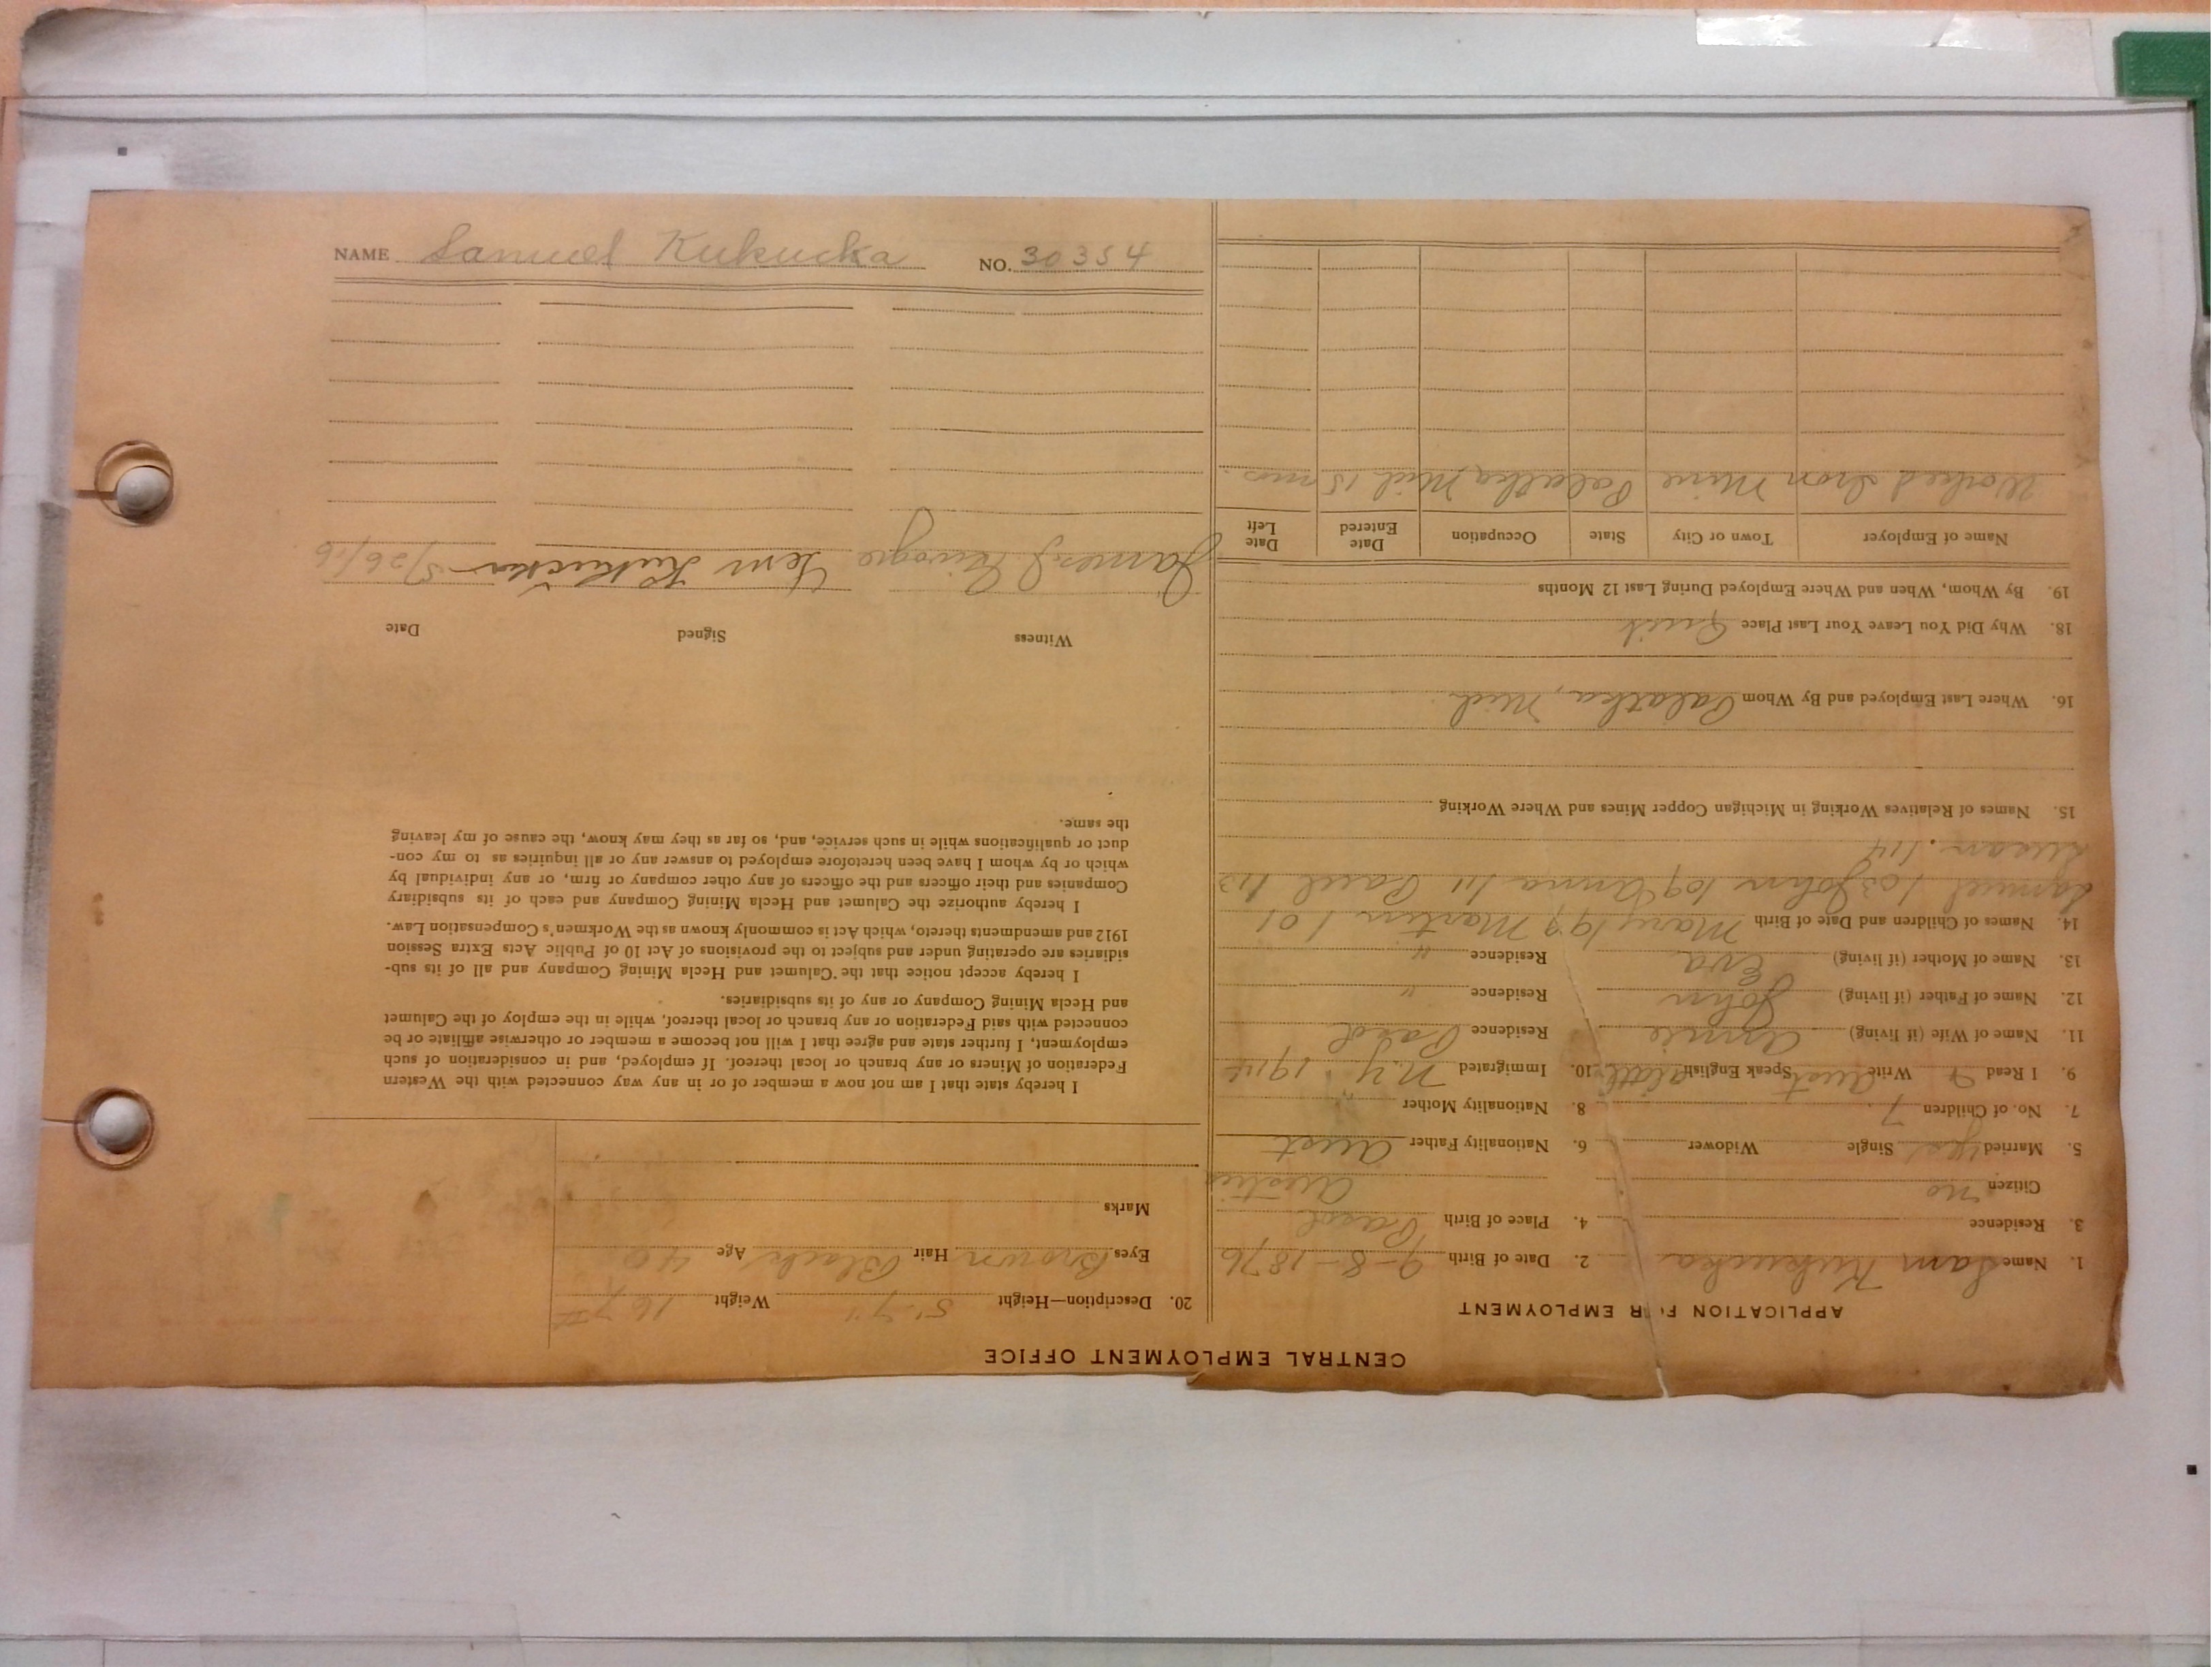 NAME Samuel Kukucka NO. 30354
CENTRAL EMPLOYMENT OFFICE
APPLICATION FOR EMPLOYMENT
1. Name Sam Kukucka 2. Date of Birth 9-8-1876
3. Residence 4. Place of Birth
Citizen no Austria
5. Married yes Single Widower 6. Nationality Father Aust
7. No. of Children 7 8. Nationality Mother "
9. I Read Write Aust Speak English 10. Immigrated N.Y. 1914
11. Name of Wife (if living) Annie Residence
12. Name of Father (if living) John Residence "
13. Name of Mother (if living) Eva Residence "
14. Names of Children and Date of Birth Mary Martin 1 01
Samuel 1 03 John 109 Anna 111 Paul 113
Susan. 114
15. Names of Relatives Working in Michigan Copper Mines and Where Working
16. Where Last Employed and By Whom Palatka, Mich
18. Why Did You Leave Your Last Place Quit
19. By Whom, When and Where Employed During Last 12 Months
Name of Employer Town or City State Occupation Date Entered Date Left
Worked Iron Mine Palatka Mich 15 mos.
20. Description—Height 5'-7" Weight 167#
Eyes Brown Hair Black Age 40
Marks
I hereby state that I am not now a member of or in any way connected with the Western
Federation of Miners or any branch or local thereof. If employed, and in consideration of such
employment, I further state and agree that I will not become a member or otherwise affiliate or be
connected with said Federation or any branch or local thereof, while in the employ of the Calumet
and Hecla Mining Company or any of its subsidiaries.
I hereby accept notice that the Calumet and Hecla Mining Company and all of its sub-
sidiaries are operating under and subject to the provisions of Act 10 of Public Acts Extra Session
1912 and amendments thereto, which Act is commonly known as the Workmen's Compensation Law.
I hereby authorize the Calumet and Hecla Mining Company and each of its subsidiary
Companies and their officers and the officers of any other company or firm, or any individual by
which or by whom I have been heretofore employed to answer any or all inquiries as to my con-
duct or qualifications while in such service, and, so far as they may know, the cause of my leaving
the same.
Witness Signed Date
James J 5/26/16